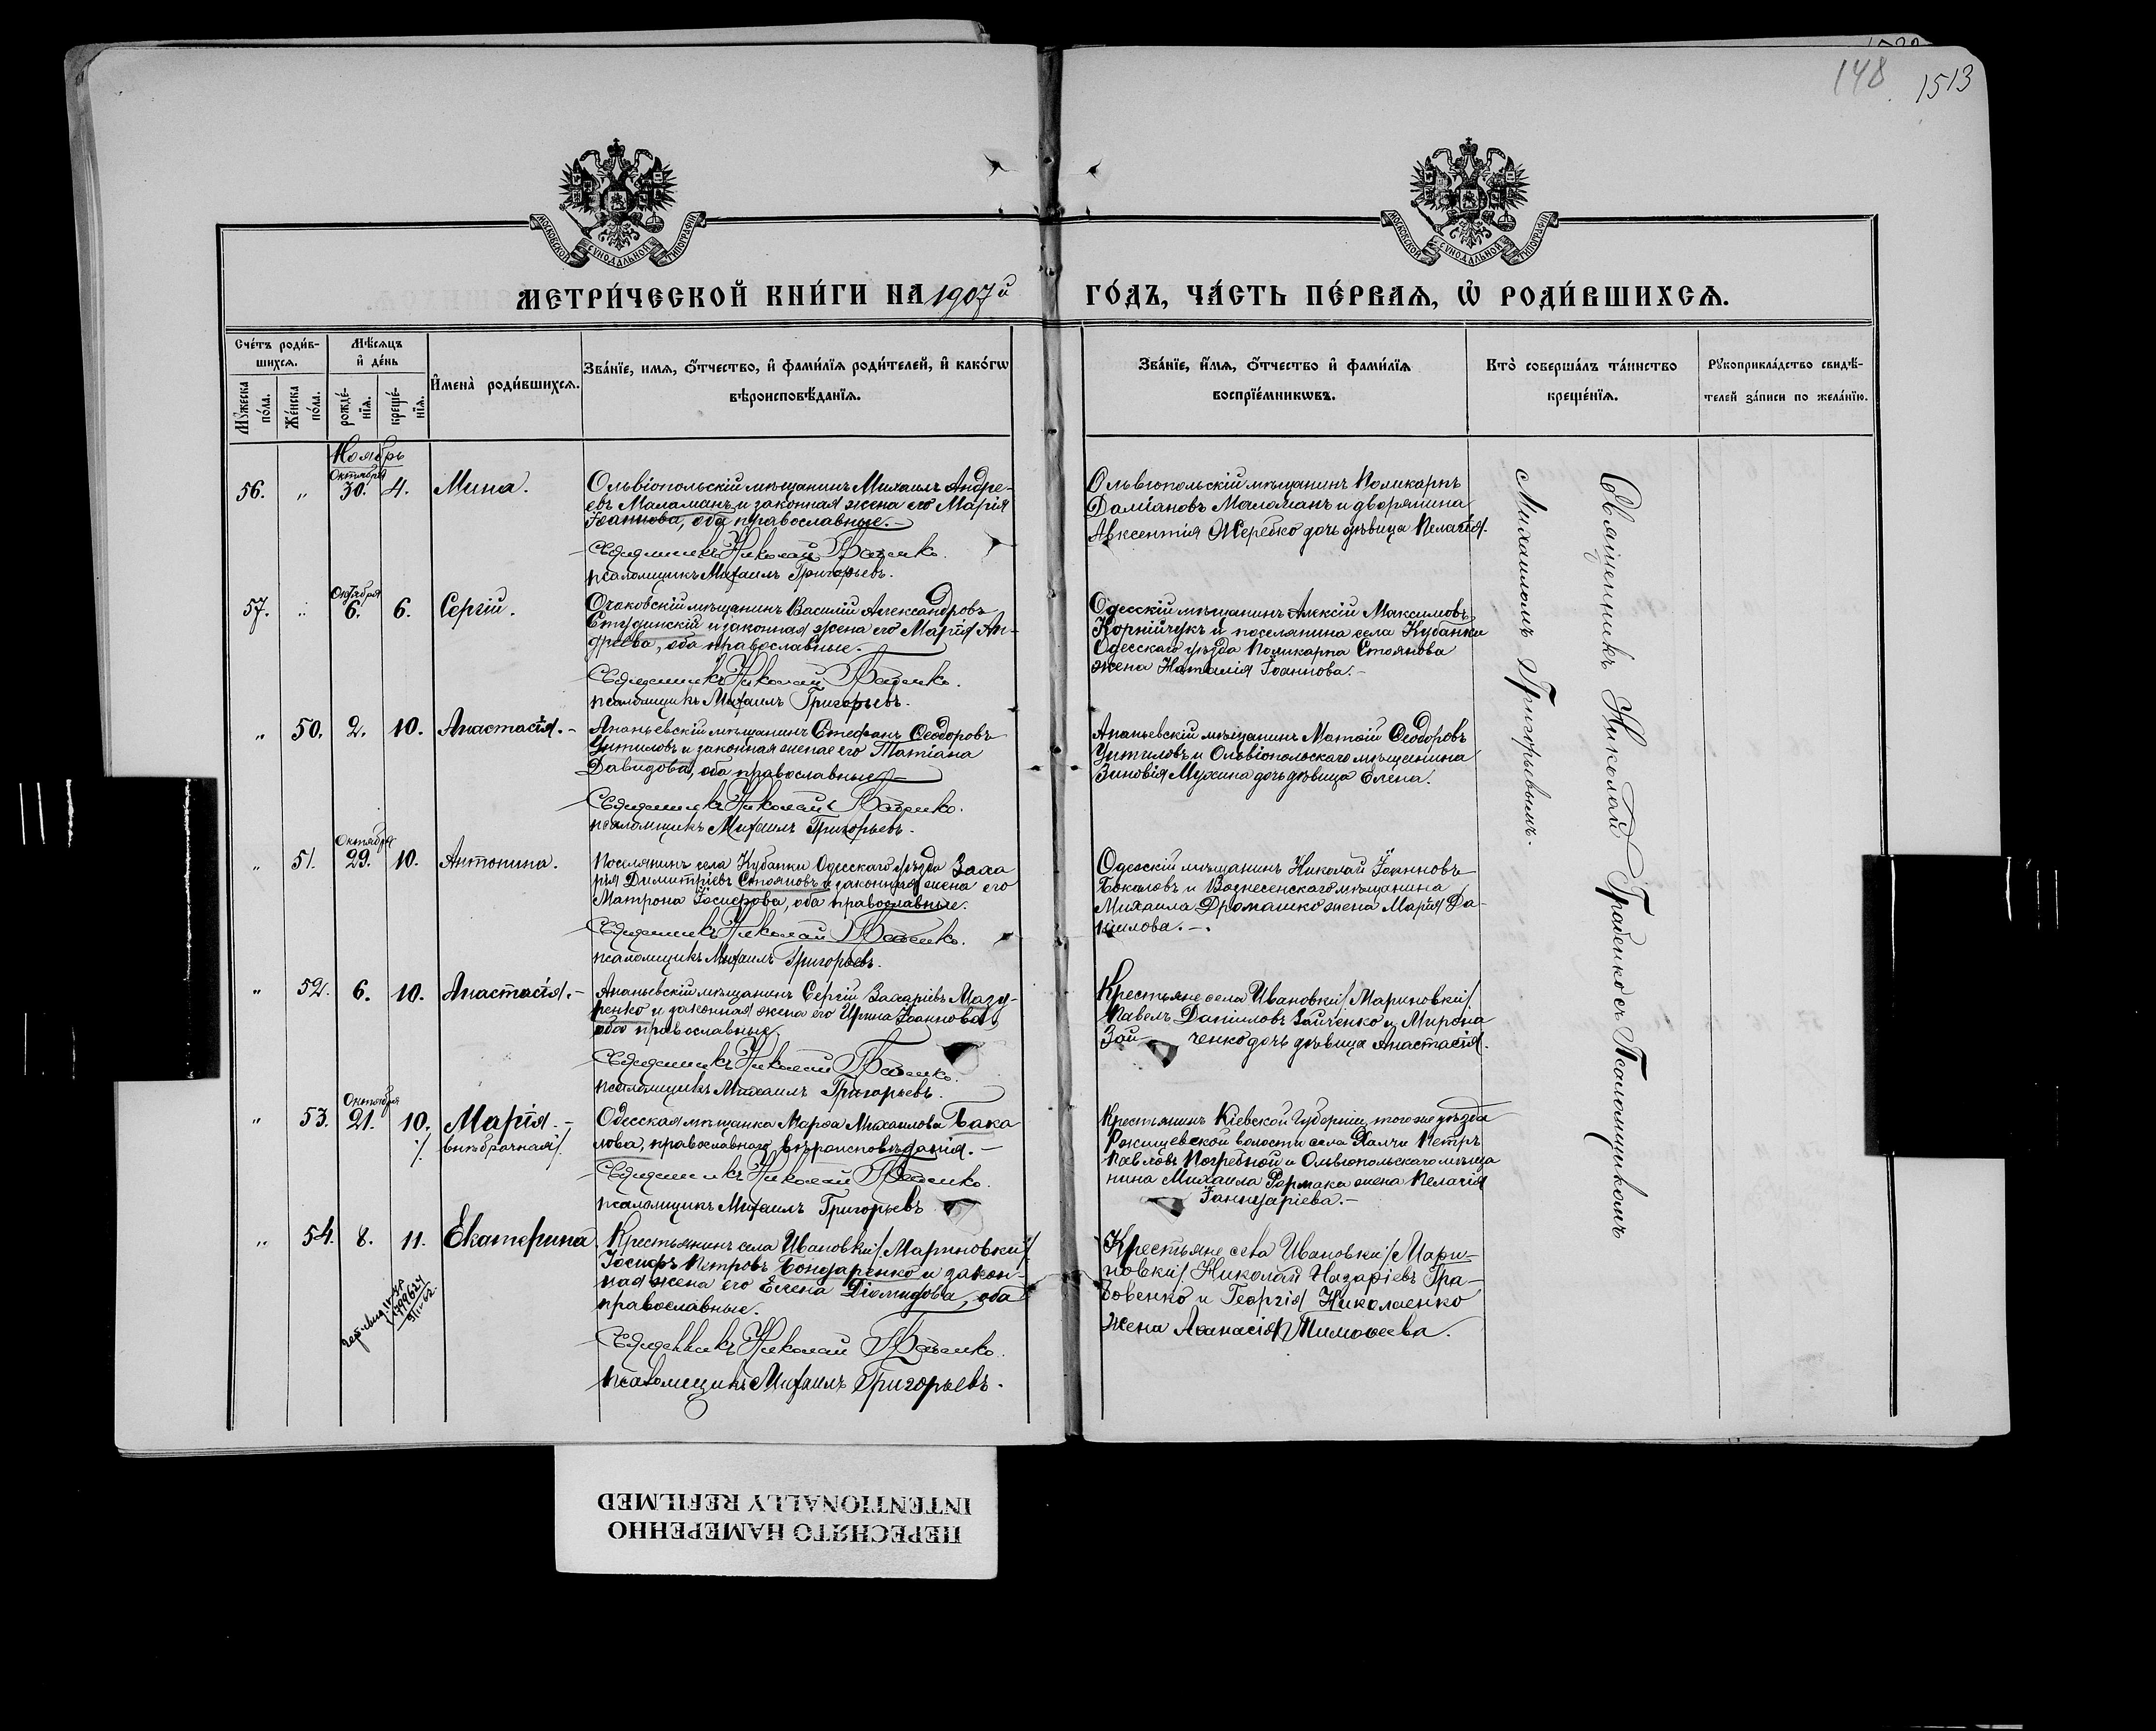 148
1513
МОСКОВСКОЙ СУНОДАЛЬНОЙ ТИПОГРАФІИ
МОСКОВСКОЙ СУНОДАЛЬНОЙ ТИПОГРАФІИ
МЕТРИ́ЧЕСКОЙ КНИ́ГИ НА 1907й
ГО́ДЪ, ЧА́СТЬ ПЕ́РВАѦ, Ѡ РОДИ́ВШИХСѦ.
Сче́тъ роди́в-
шихсѧ.
Мꙋжеска
по́ла.
Же́нска
по́ла.
Мѣ́сѧцъ
и҆ де́нь
рожде́-
нїѧ.
креще́-
нїѧ.
И҆мена̀ роди́вшихсѧ.
Зва́нїе, имѧ, ѻ҆́тчество, и҆ фами́лїѧ роди́телей, и҆ како́гѡ
вѣроисповѣ́данїѧ.
Зва́нїе, и҆́мѧ, ѻ҆́тчество и҆ фами́лїѧ
воспрїе́мникѡвъ.
Кто̀ соверша́лъ та́инство
креще́нїѧ.
Рꙋкоприкла́дство свидѣ́-
телей за́писи по жела́нїю.
Ноябрь
Октября
56. „ 30. 4. Мина.
Ольвіопольскій мѣщанинъ Михаилъ Андре-
евъ Маламанъ и законная жена его Марія
Іоаннова, оба православные.-
Священникъ Николай
псаломщикъ Михаилъ Григорьевъ.
Ольвіопольскій мѣщанинъ Поликарпъ
Даміановъ Маламанъ и дворянина
Авксентія Жеребко дочь дѣвица Пелагія.
Октября
57. „ 6. 6. Сергій.
Очаковскій мѣщанинъ Василій Александровъ
Студинскій и законная жена его Марія Ан-
дреева, оба православные.-
Священникъ Николай
псаломщикъ Михаилъ Григорьевъ.
Одесскій мѣщанинъ Алексій Максимовъ
Корнійчукъ и поселянина села Кубанки
Одесскаго уѣзда Поликарпа Стоянова
жена Наталія Іоаннова.-
„ 50. 2. 10. Анастасія.-
Ананьевскій мѣщанинъ Стефанъ Ѳеодоровъ
Унтиловъ и законная жена его Татіана
Давидова, оба православные.-
Священникъ Николай
псаломщикъ Михаилъ Григорьевъ.
Ананьевскій мѣщанинъ Матѳій Ѳеодоровъ
Унтиловъ и Ольвіопольскаго мѣщанина
Зиновія Мухина дочь дѣвица Елена.
Октября
„ 51. 29. 10. Антонина.
Поселянинъ села Кубанки Одесскаго уѣзда Заха
рія Димитріевъ Стояновъ и законная жена его
Матрона Іосифова, оба православные.
Священникъ Николай
псаломщикъ Михаилъ Григорьевъ.
Одесскій мѣщанинъ Николай Іоанновъ
Бокаловъ и Вознесенскаго мѣщанина
Михаила Дромашко жена Марія Да-
ніилова.-.
„ 52. 6. 10. Анастасія.-
Ананьевскій мѣщанинъ Сергій Захаріевъ Мазу-
ренко и законная жена его Ирина Іоаннова
оба православные
Священникъ Николай
псаломщикъ Михаилъ Григорьевъ.
Крестьяне села Ивановки/Мариновки/
Павелъ Даніиловъ Зайченко и Мирона
Зай- ченко дочь дѣвица Анастасія.
Октября
„ 53. 21. 10. Марія.-
/внѣбрачная/.
Одесская мѣщанка Марѳа Михаилова Бака
лова, православнаго вѣроисповѣданія.-
Священникъ Николай
псаломщикъ Михаилъ Григорьевъ
Крестьянинъ Кіевской Губерніи, того же уѣзда
Рожищевской волости села Халчи Петръ
Павловъ Погребной и Ольвіопольскаго мѣща
нина Михаила Фермака жена Пелагія
Іаннуаріева.-
„ 54. 8. 11. Екатерина.
Крестьянинъ села Ивановки/Мариновки/
Іосифъ Петровъ Бондаренко и закон-
ная жена его Елена Діомидова, оба
православные.
Священникъ Николай
псаломщикъ Михаилъ Григорьевъ.
Крестьяне села Ивановки/Мари-
новки/ Николай Назаріевъ Гра-
бовенко и Георгія Николаенко
жена Аѳанасія Тимоѳеева.
Священникъ Николай Грабенко съ Псаломщикомъ
Михаиломъ Григорьевымъ.
ПЕРЕСНЯТО НАМЕРЕННО
INTENTIONALLY REFILMED